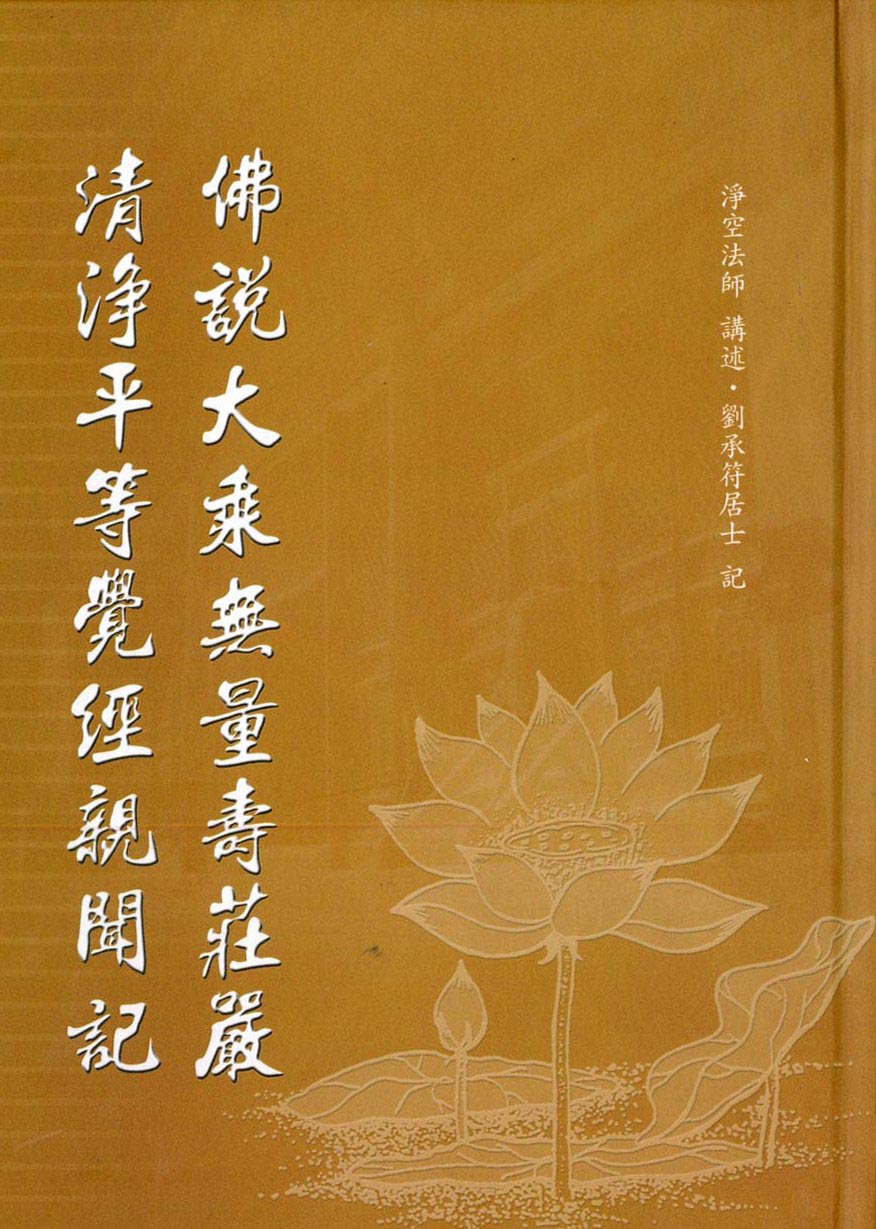 淨空法師 講述・劉承符居士 記
佛說大乘無量壽莊嚴
清淨平等覺經親聞記